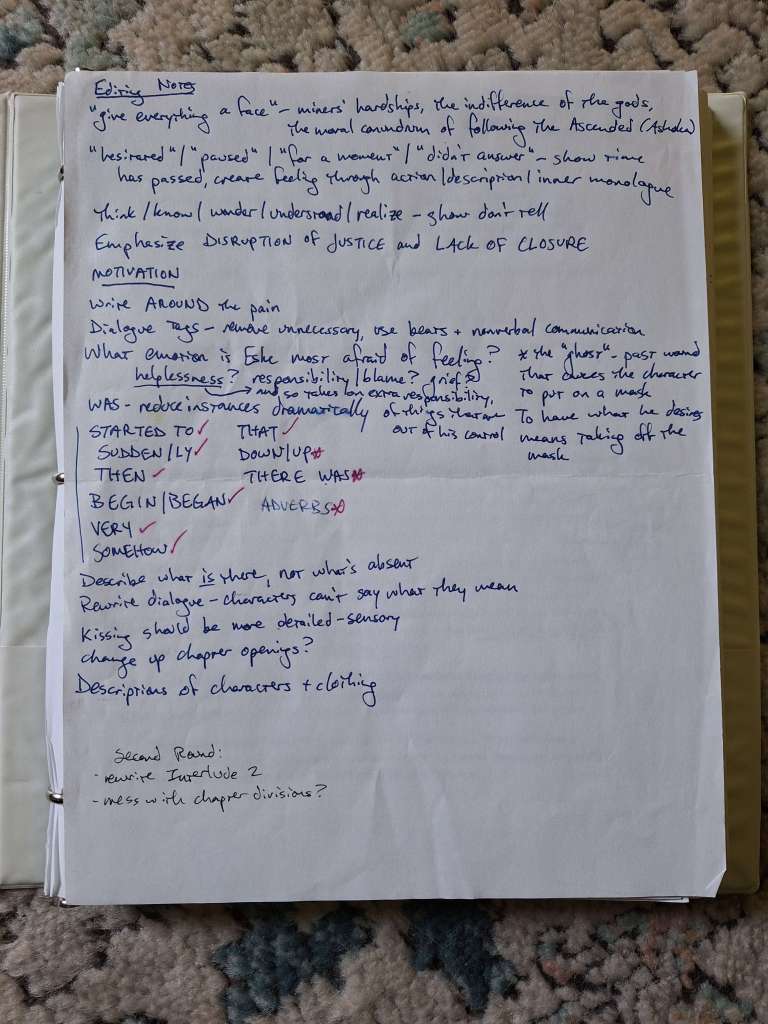 Editing Notes
"give everything a face" – miners' hardships, the indifference of the gods,
the moral conundrum of following the Ascended (Ashoka)
"hesitated" / "paused" / "for a moment" / "didn't answer" – show time
has passed, create feeling through action/description/inner monologue
Think / know / wonder / understand / realize – show don't tell
Emphasize DISRUPTION OF JUSTICE and LACK OF CLOSURE
MOTIVATION
Write AROUND the pain
Dialogue Tags – remove unnecessary, use beats + nonverbal communication
What emotion is Eske most afraid of feeling?
helplessness? responsibility/blame? grief?
and so takes on extra responsibility,
of things that are
out of his control
* the "ghost" – past wound
that causes the character
to put on a mask
To have what he desires
means taking off the
mask
WAS – reduce instances dramatically
STARTED TO ✓ THAT ✓
SUDDEN/LY ✓ DOWN/UP
THEN ✓ THERE WAS
BEGIN/BEGAN ✓ ADVERBS
VERY ✓
SOMEHOW ✓
Describe what is there, not what's absent
Rewrite dialogue – characters can't say what they mean
Kissing should be more detailed – sensory
change up chapter openings?
Descriptions of characters + clothing
Second Round:
- rewrite Interlude 2
- mess with chapter divisions?